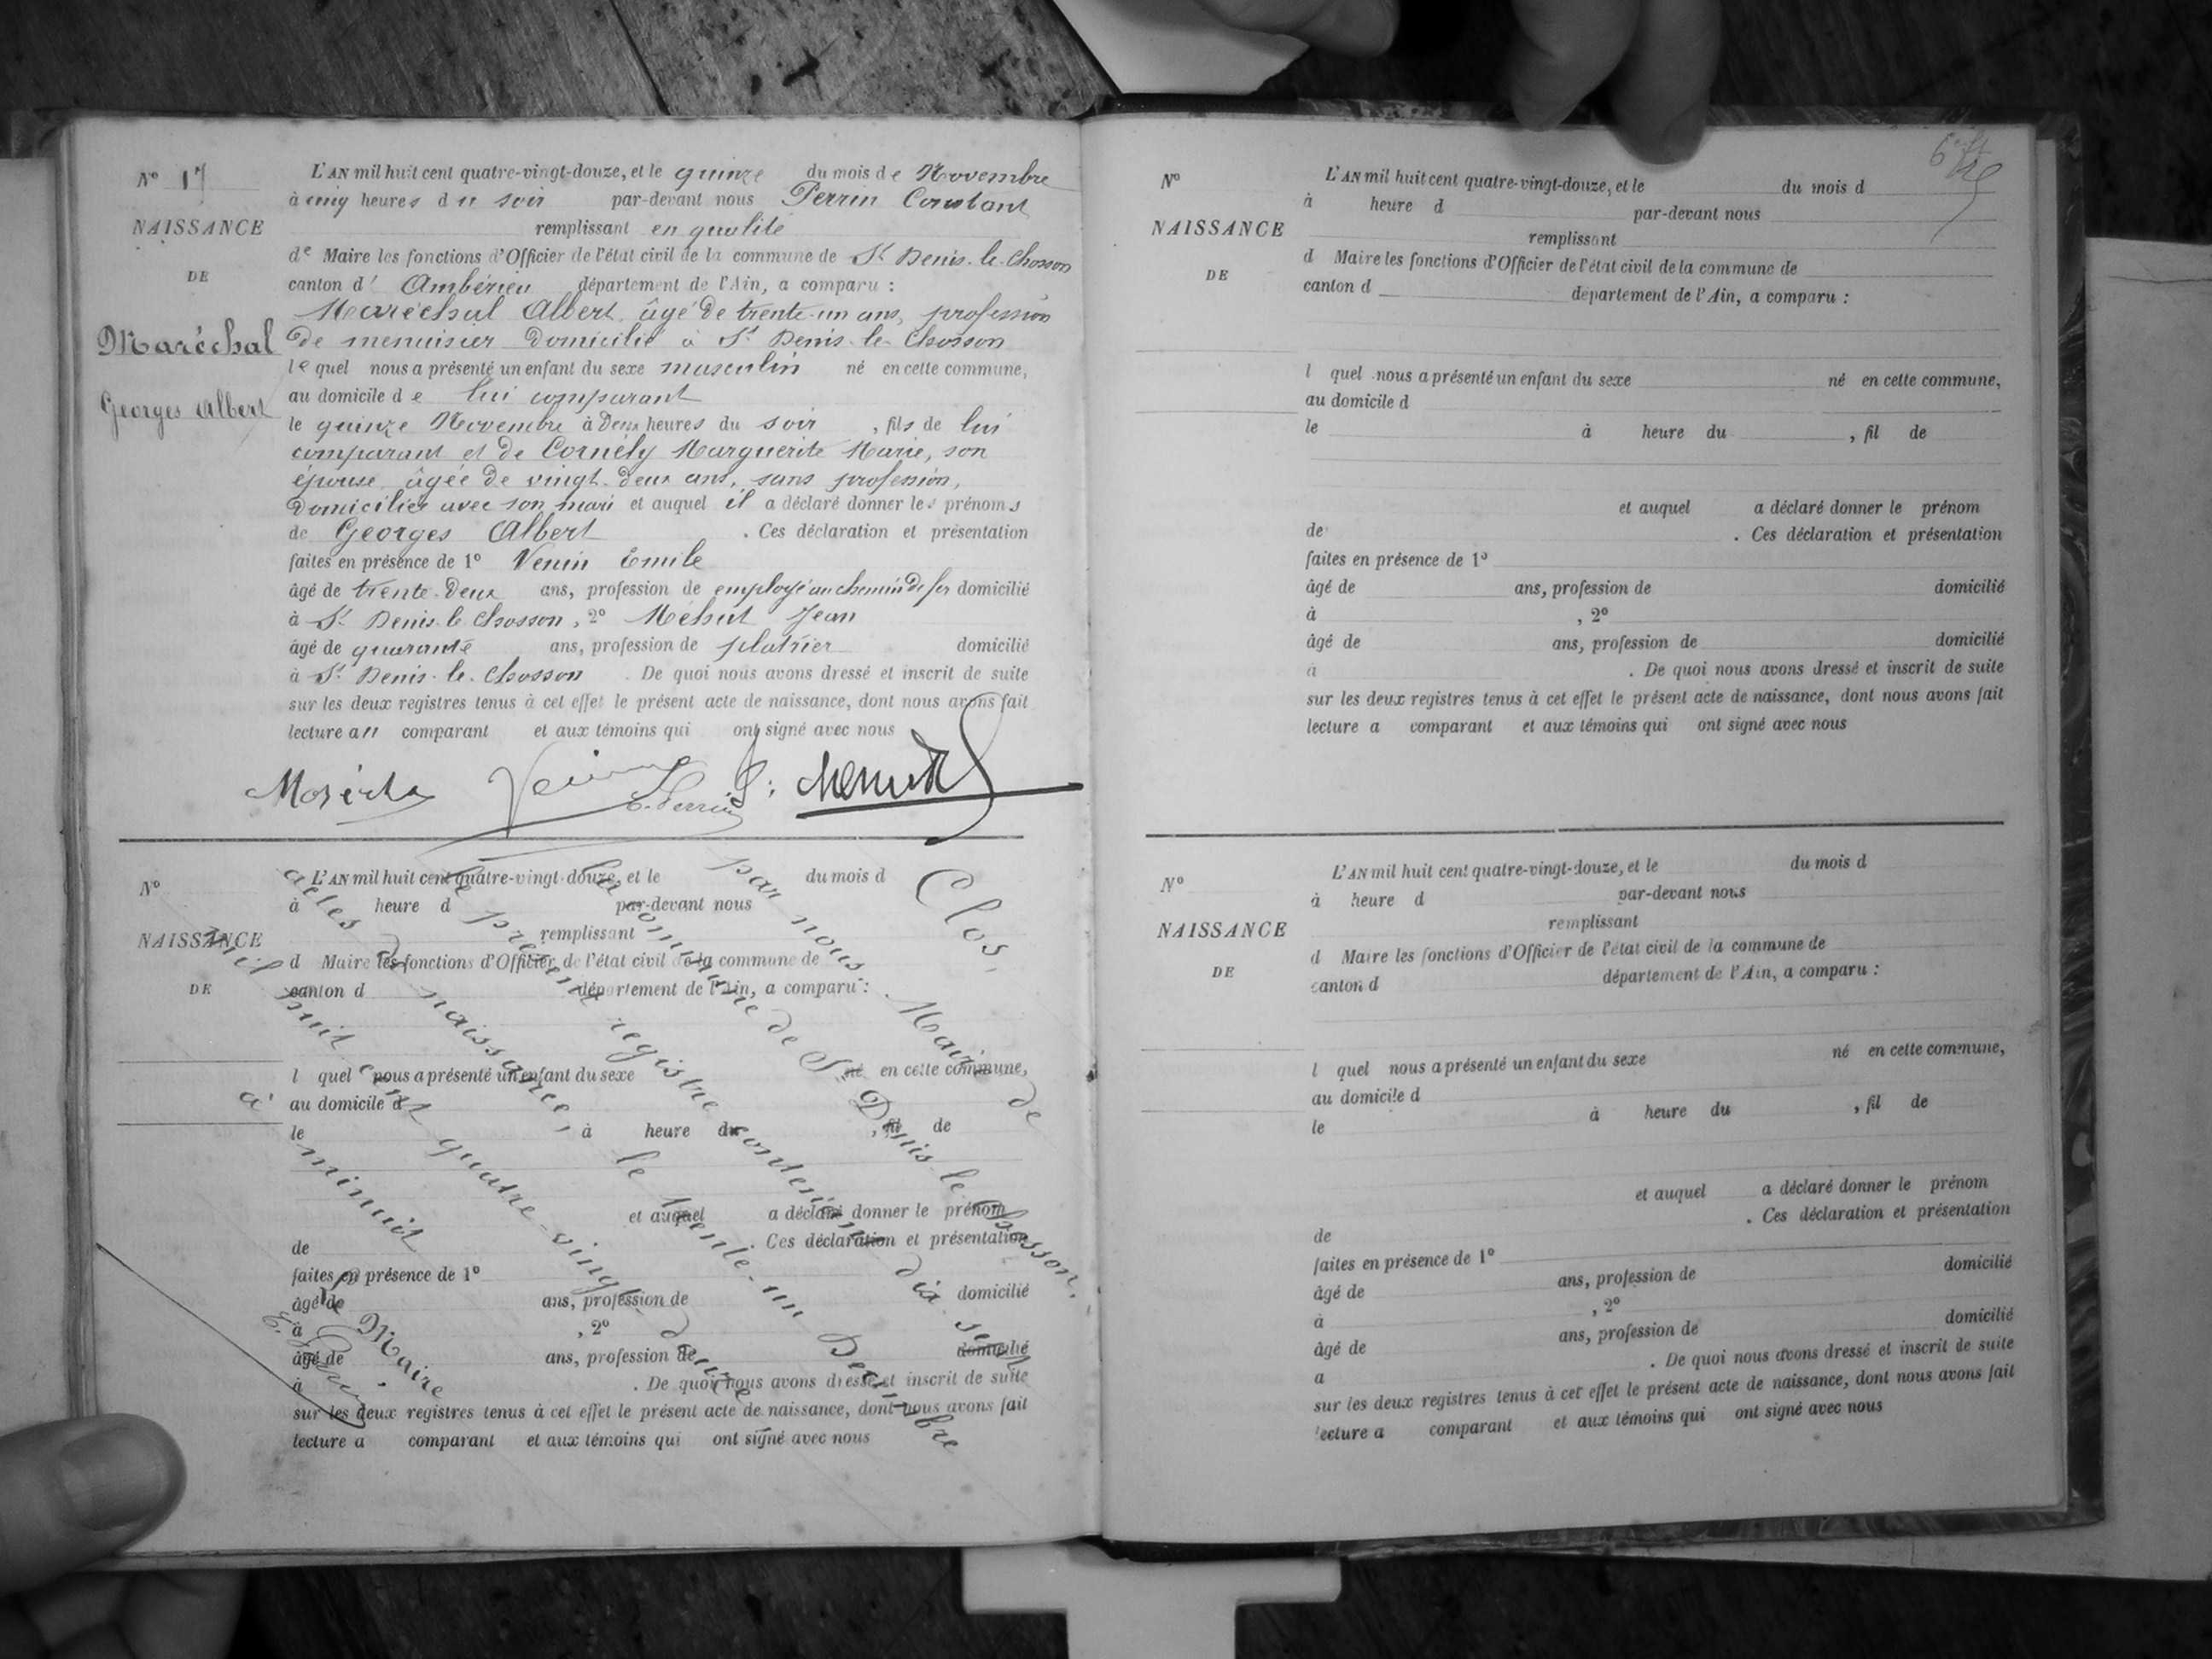 N° 17
NAISSANCE
DE
Maréchal
Georges Albert
L'AN mil huit cent quatre-vingt-douze, et le quinze du mois de Novembre
à cinq heures du soir par-devant nous Perrin Constant
remplissant en qualité
de Maire les fonctions d'Officier de l'état civil de la commune de St Denis-le-Chosson
canton d'Ambérieu département de l'Ain, a comparu :
Maréchal Albert, âgé de trente-un ans, profession
de menuisier domicilié à St Denis-le-Chosson
lequel nous a présenté un enfant du sexe masculin né en cette commune,
au domicile de lui comparant
le quinze Novembre à deux heures du soir, fils de lui
comparant et de Cornély Marguerite Marie, son
épouse âgée de vingt-deux ans, sans profession,
domiciliée avec son mari et auquel il a déclaré donner les prénoms
de Georges Albert . Ces déclaration et présentation
faites en présence de 1° Venin Emile
âgé de trente-deux ans, profession de employé au chemin de fer domicilié
à St Denis-le-Chosson, 2° Méhut Jean
âgé de quarante ans, profession de platrier domicilié
à St Denis-le-Chosson . De quoi nous avons dressé et inscrit de suite
sur les deux registres tenus à cet effet le présent acte de naissance, dont nous avons fait
lecture au comparant et aux témoins qui ont signé avec nous
C. Perrin
N°
NAISSANCE
DE
L'AN mil huit cent quatre-vingt-douze, et le du mois d
à heure d par-devant nous
remplissant
d Maire les fonctions d'Officier de l'état civil de la commune de
canton d département de l'Ain, a comparu :
l quel nous a présenté un enfant du sexe né en cette commune,
au domicile d
le à heure du , fil de
et auquel a déclaré donner le prénom
de Ces déclaration et présentation
faites en présence de 1°
âgé de ans, profession de domicilié
à , 2°
âgé de ans, profession de domicilié
à . De quoi nous avons dressé et inscrit de suite
sur les deux registres tenus à cet effet le présent acte de naissance, dont nous avons fait
lecture a comparant et aux témoins qui ont signé avec nous
Clos,
par nous, Maire de
la commune de St Denis-le-Chosson,
le présent registre contenant dix-sept
actes de naissance, le trente-un Décembre
mil huit cent quatre-vingt-douze
à minuit
Le Maire,
C. Perrin
N°
NAISSANCE
DE
L'AN mil huit cent quatre-vingt-douze, et le du mois d
à heure d par-devant nous
remplissant
d Maire les fonctions d'Officier de l'état civil de la commune de
canton d département de l'Ain, a comparu :
l quel nous a présenté un enfant du sexe né en cette commune,
au domicile d
le à heure du , fil de
et auquel a déclaré donner le prénom
de . Ces déclaration et présentation
faites en présence de 1°
âgé de ans, profession de domicilié
à , 2°
âgé de ans, profession de domicilié
à . De quoi nous avons dressé et inscrit de suite
sur les deux registres tenus à cet effet le présent acte de naissance, dont nous avons fait
lecture a comparant et aux témoins qui ont signé avec nous
N°
NAISSANCE
DE
L'AN mil huit cent quatre-vingt-douze, et le du mois d
à heure d par-devant nous
remplissant
d Maire les fonctions d'Officier de l'état civil de la commune de
canton d département de l'Ain, a comparu :
l quel nous a présenté un enfant du sexe né en cette commune,
au domicile d
le à heure du , fil de
et auquel a déclaré donner le prénom
de . Ces déclaration et présentation
faites en présence de 1°
âgé de ans, profession de domicilié
à , 2°
âgé de ans, profession de domicilié
a . De quoi nous avons dressé et inscrit de suite
sur les deux registres tenus à cet effet le présent acte de naissance, dont nous avons fait
lecture a comparant et aux témoins qui ont signé avec nous